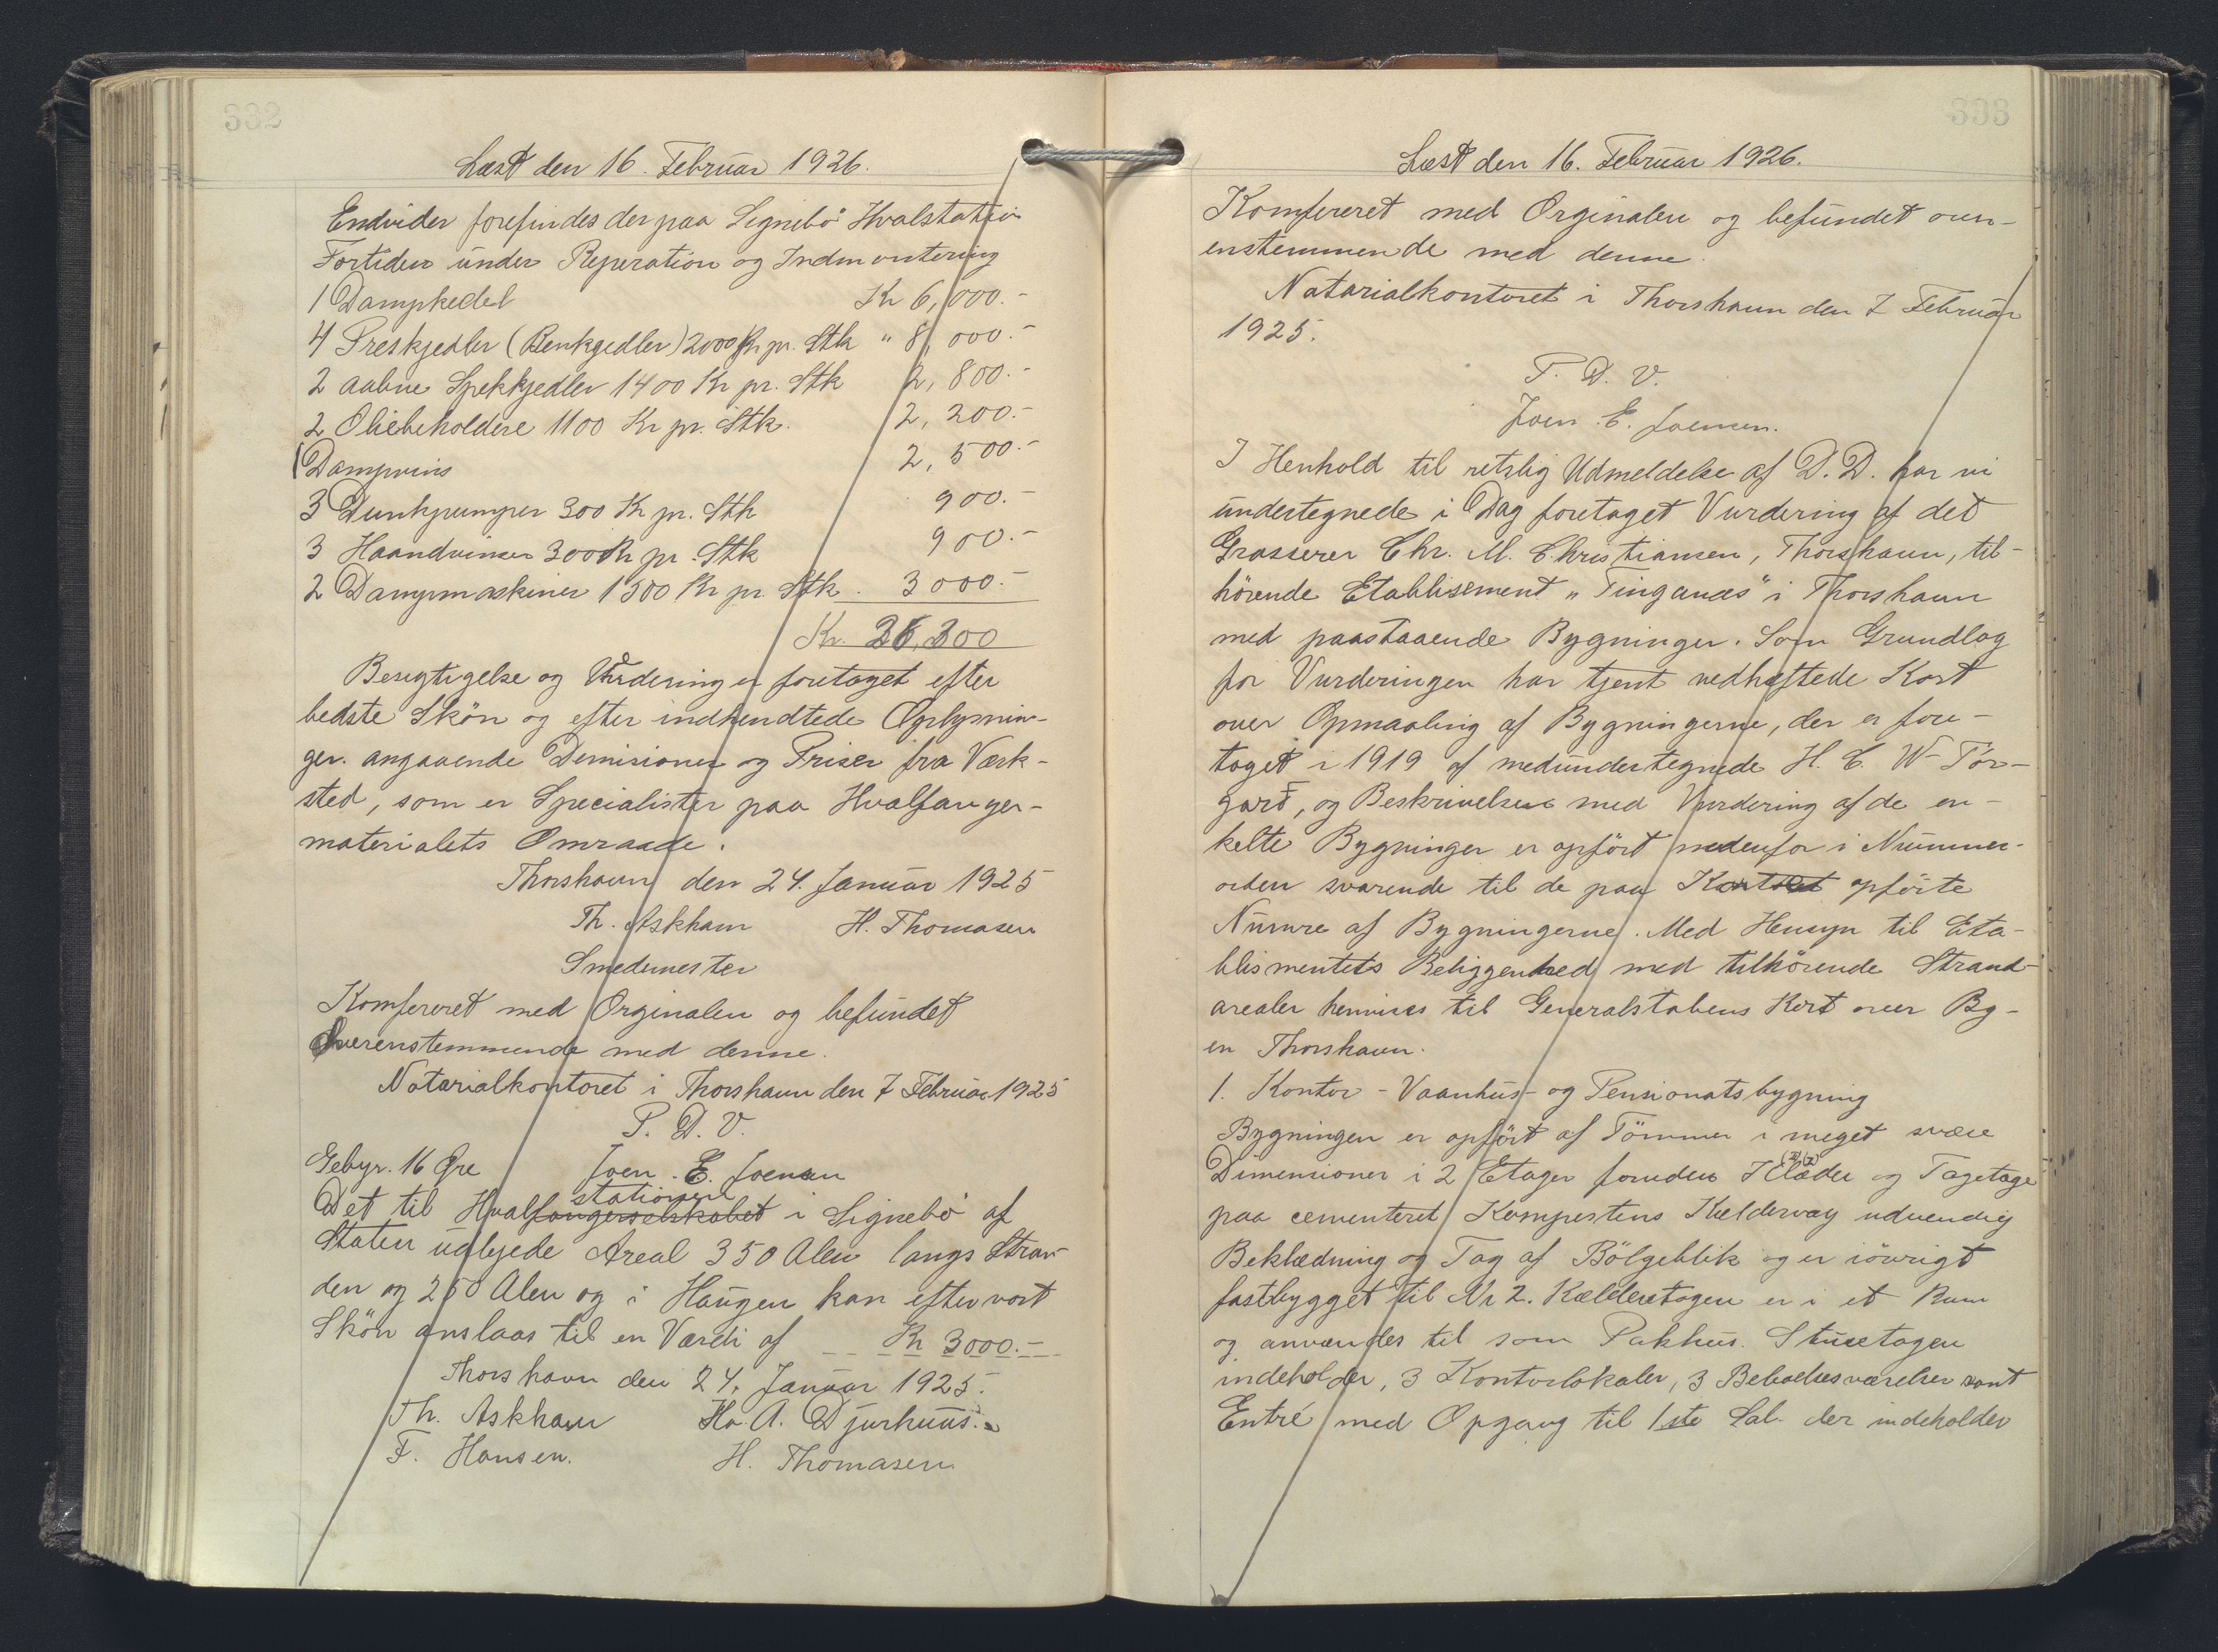 332
Læst den 16. Februar 1926.
Endvider forefindes der paa Lignebö Hvalstation
Fortiden under Reperation og Indmontering
1 Dampkedel Kr 6,000.-
4 Preskjedler (Benkgedler) 2000 Kr pr. Stk " 8,000.-
2 aabne Spekkjedler 1400 Kr pr. Stk 2,800.-
2 Oliebeholdere 1100 Kr pr. Stk. 2,200.-
1 Dampvins 2,500.-
3 Dunkpumper 300 Kr pr. Stk 900.-
3 Haandvinser 300 Kr pr. Stk 900.-
2 Dampmaskiner 1500 Kr pr. Stk. 3000.-
Kr. 26,300
Besigtigelse og Vurdering er foretaget efter
bedste Skön og efter indhendtede Oplysnin-
ger. angaaende Demisioner og Priser fra Værk-
sted, som er Specialister paa Hvalfanger-
materialets Omraade.
Thorshavn den 24. Januar 1925
Th. Askham H. Thomasen
Smedemester
Komfereret med Orginalen og befundet
Overenstemmende med denne.
Notarialkontoret i Thorshavn den 7 Februar 1925
P. D. V.
Gebyr. 16 Øre Joen. E. Joensen
stationen
Det til Hvalfangerselskabet i Lignebö af
Staten udlejede Areal 350 Alen langs Stran-
den og 250 Alen og i Haugen kan efter vort
Skön anslaas til en Værdi af Kr 3000.-
Thorshavn den 24. Januar 1925.
Th. Askham Ho. A. Djurhuus.
F. Hansen. H. Thomasen
333
Læst den 16. Februar 1926.
Komfereret med Orginalen og befundet over-
enstemmende med denne.
Notarialkontoret i Thorshavn den 7 Februar
1925.
P. D. V.
Joen. E. Joensen.
I Henhold til retslig Udmeldelse af D. D. har vi
undertegnede i Dag foretaget Vurdering af det
Grosserer Chr. M. Christiansen, Thorshavn, til-
hörende Etablisement "Tinganæs" i Thorshavn
med paastaaende Bygninger. Som Grundlag
for Vurderingen har tjent vedhæftede Kort
over Opmaaling af Bygningerne, der er fore-
taget i 1919 af medundertegnede H. C. W. Tór-
gard, og Beskrivelsen med Vurdering af de en-
kelte Bygninger er opfört nedenfor i Nummer-
orden svarende til de paa Kortet opförte
Numre af Bygningerne. Med Hensyn til Eta-
blismentets Beliggenhed med tilhörende Strand-
arealer henvises til Generalstabens Kort over By-
en Thorshavn.
1. Kontor- Vaanhus- og Pensionatsbygning
Bygningen er opfört af Tömmer i meget svære
Dimensioner i 2 Etager foruden Kælder og Tagetage
paa cementeret Kampestens Kældervæg udvendig
Beklædning og Tag af Bölgeblik og er iövrigt
fastbygget til Nr 2. Kælderetagen er i et Rum
og anvendes til som Pakhus. Stueetagen
indeholder, 3 Kontorlokaler, 3 Beboelsesværelser samt
Entré med Opgang til 1ste Sal. der indeholder